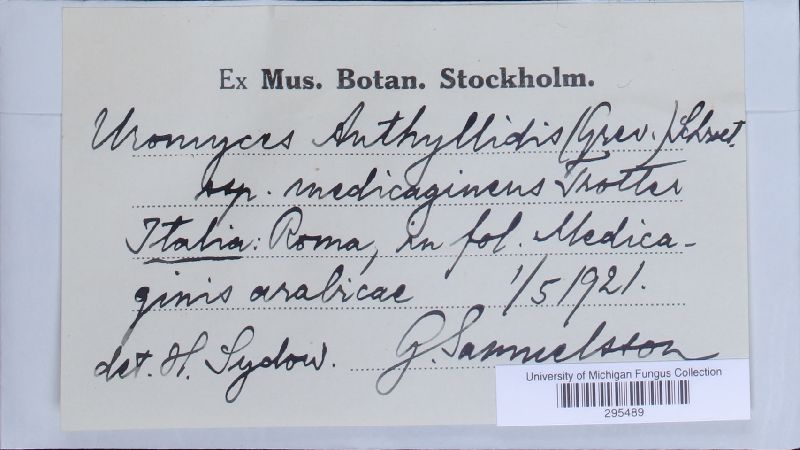 Ex Mus. Botan. Stockholm.
Uromyces Anthyllidis (Grev.) Schroet.
ssp. medicagineus Trotter
Italia: Roma, in fol. Medica-
ginis arabicae 1/5 1921.
det. H. Sydow. G. Samuelsson
University of Michigan Fungus Collection
295489